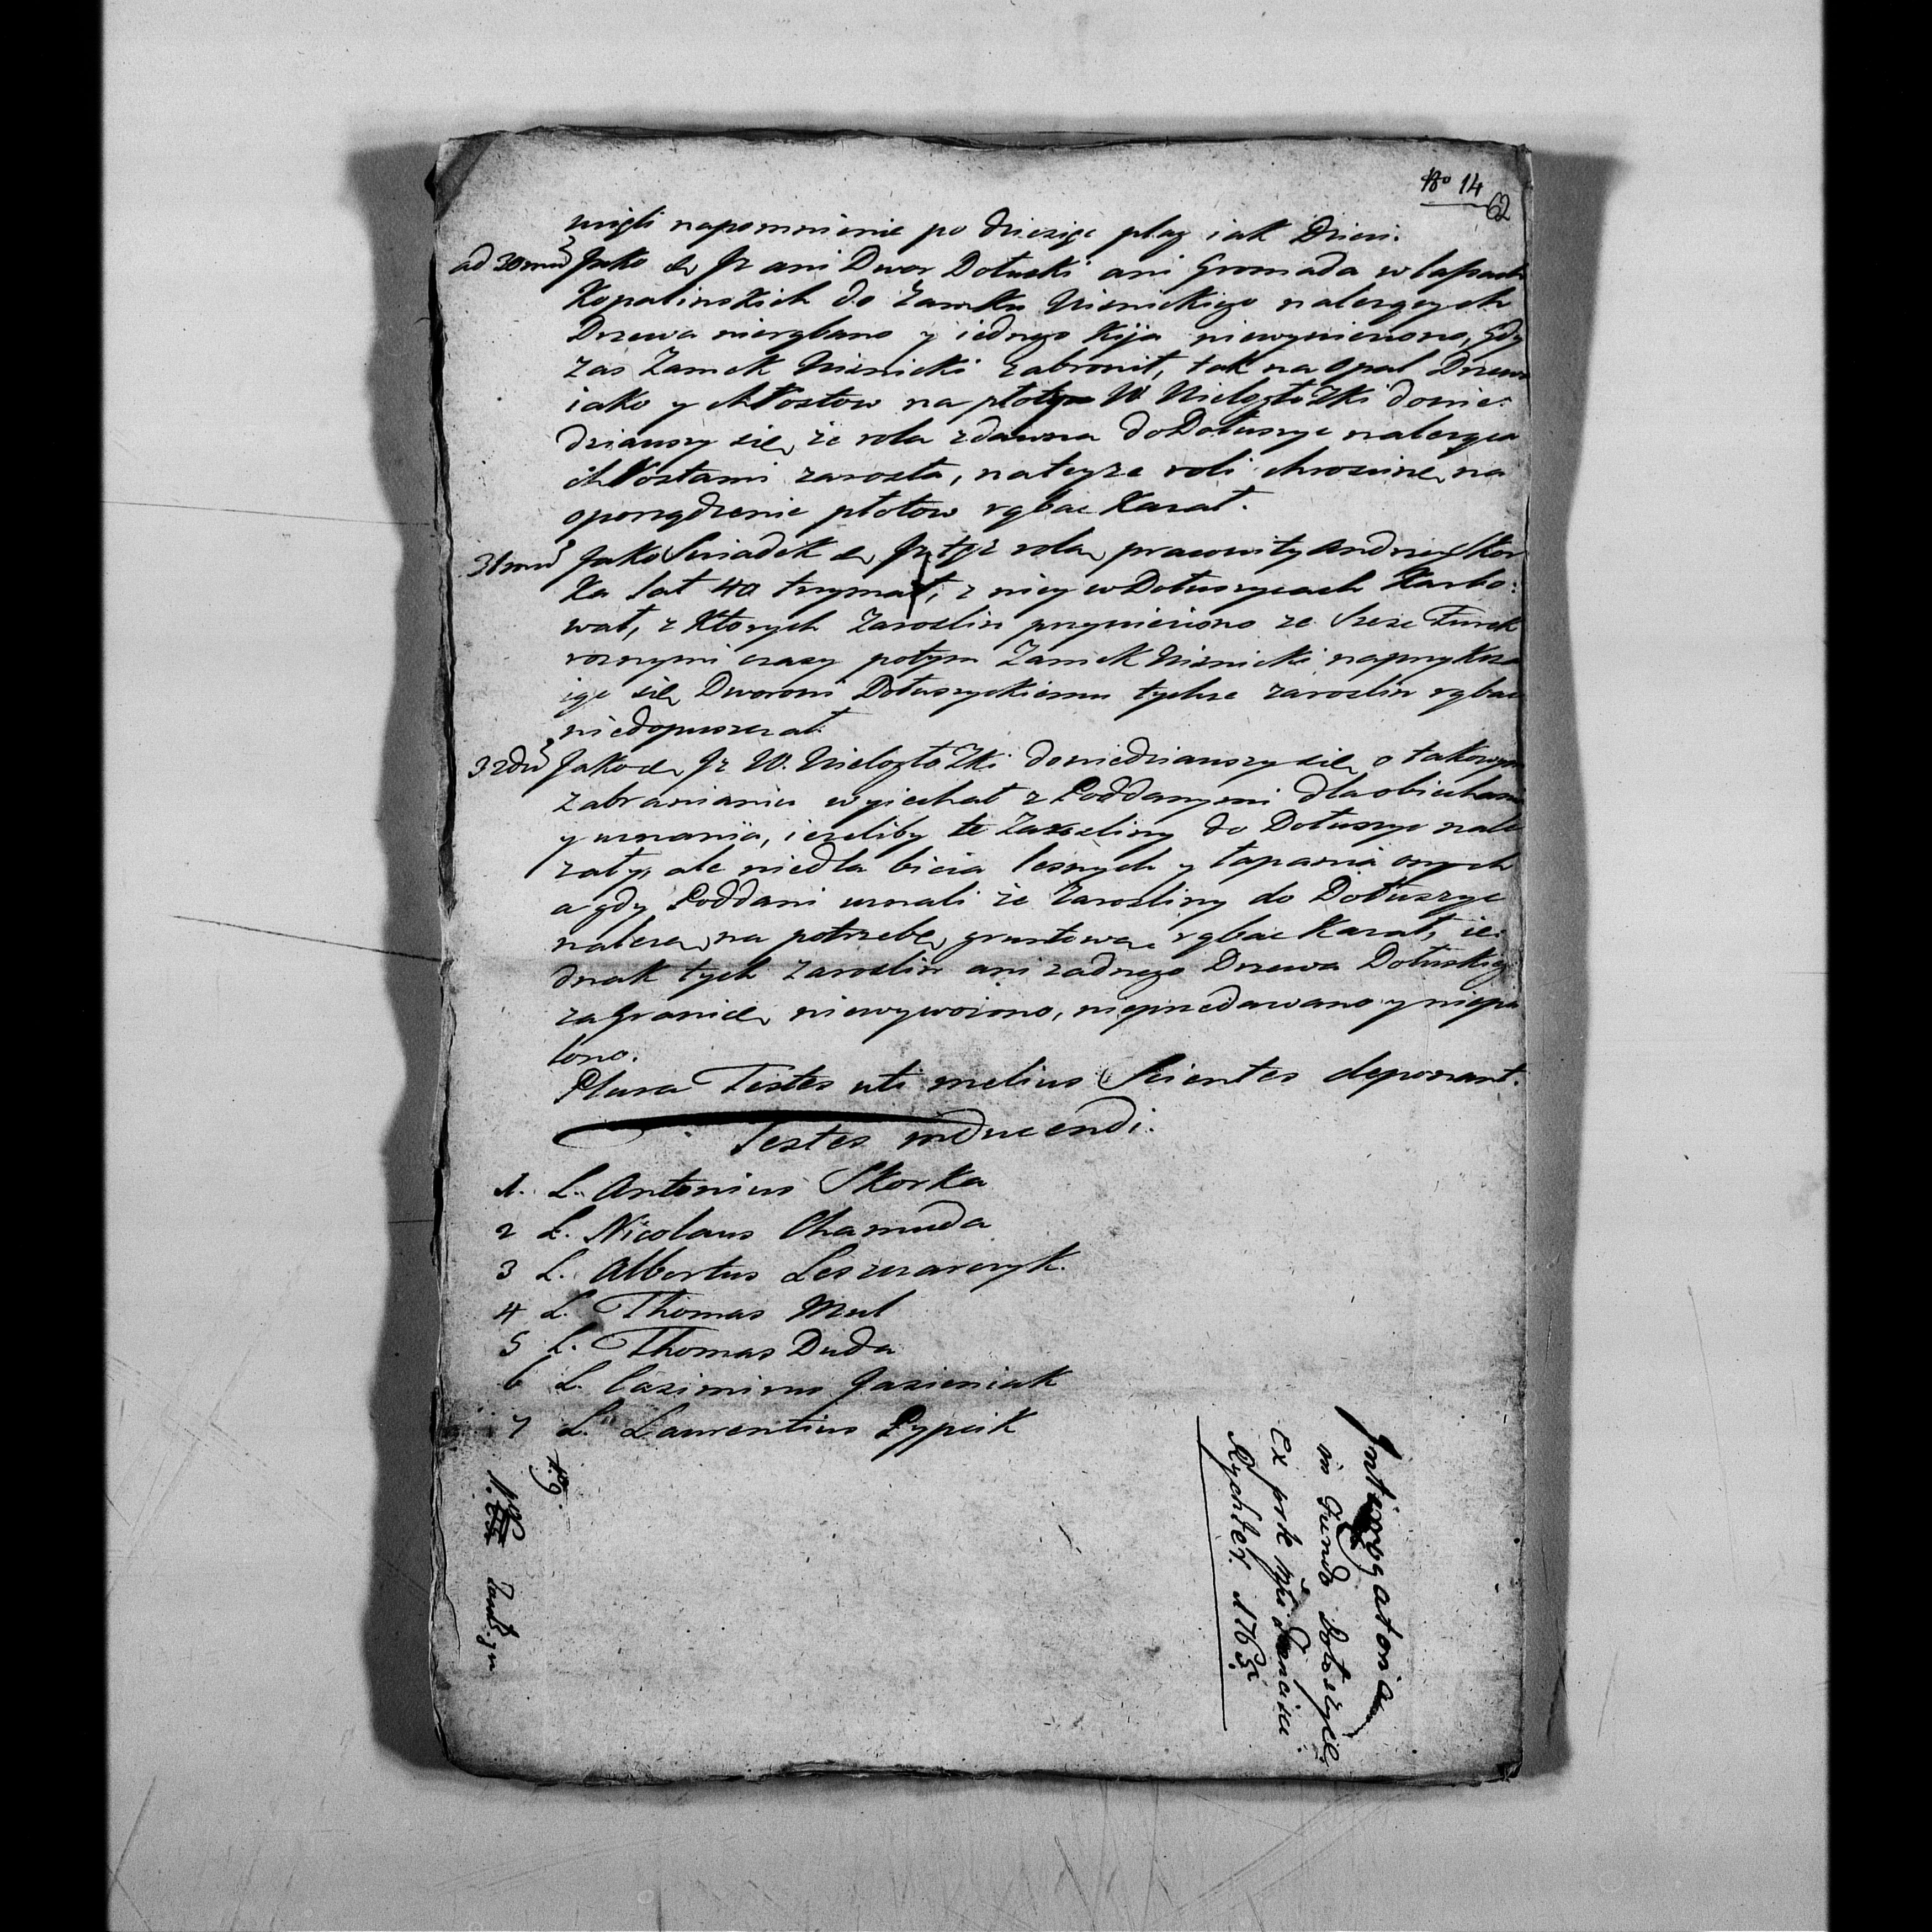 No 14
62
wzięli napomnienie po dziesięc plag iak Dzieci.
ad 30mū Jako Dwor Dołuski ani Gromada w lassach
Kopalinskich do Zamku Wisnickiego nalezących
Drzewa nierąbano y iednego Kija niewyniesiono, Gdy
zas Zamek Wisnicki zabronił, tak na Opał Drzewa
iako y chłostow na płoty W. Wielogłoski dowie:
dziawszy się, ze rola zdawna do Dołuszyc naleząca
chłostami zarosła, na teyze roli chroscine na
oporządzenie płotow rąbac Kazał.
31mū Jako Swiadek rola pracowity Andrzey Skor
ka lat 40 trzymał, z niey w Dołuszycach Karbo:
wał, z Ktorych Zaroslin przywieziono ze Szesc Furek
roznymi czasy potym Zamek Wisnicki naprzykrza
iąc się Dworowi Dołuszyckiemu tychze zaroslin rąbac
niedopuszczał.
32dū Jako W. Wielogłoski dowiedziawszy się o takowym
zabranianiu wyiechał z Poddanymi dla obiechania
y uznania, iezeliby te Zarosliny do Dołuszyc nale
zały, ale niedla bicia lesnych y łapania onych
a gdy Poddani uznali ze Zarosliny do Dołuszyc
naleza, na potrzebę gruntowa rąbac Kazał, ie:
dnak tych zaroslin ani zadnego Drzewa Dołuskiego
za Granicę niewywoiono, nieprzedawano y niepa
lono.
Plura Testes uti melius Scientes deponant.
Testes inducendi.
1. L. Antonius Skorka
2 L. Nicolaus Chamuda
3 L. Albertus Leszczarczyk.
4 L. Thomas Mul
5 L. Thomas Duda
6 L. Casimirus Jasieniak
7 L. Laurentius Pypcik
Interrogatoria
in Fundo Dołuszyce
Ex prte Mfci Francisci
Rychter. 1765.